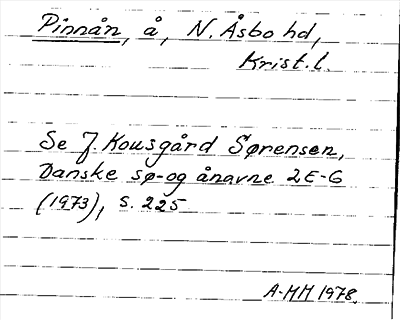 Pinnån, å, N. Åsbo hd,
Krist. l.
Se J. Kousgård Sørensen,
Danske sø- og ånavne 2 E-G
(1973), s. 225
A-MH 1978.